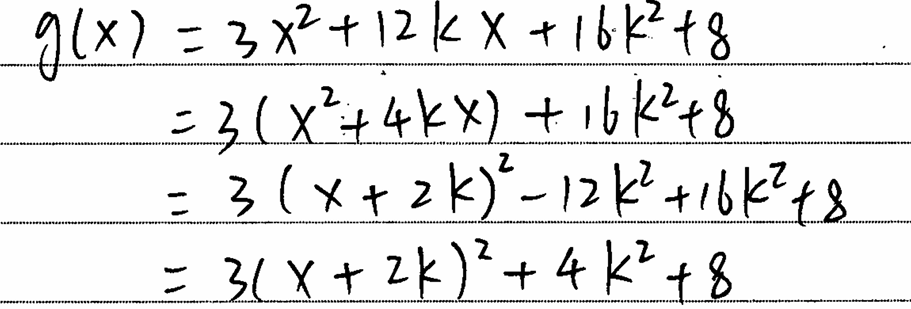 g(x) = 3x² + 12kx + 16k² + 8
= 3(x² + 4kx) + 16k² + 8
= 3(x + 2k)² - 12k² + 16k² + 8
= 3(x + 2k)² + 4k² + 8